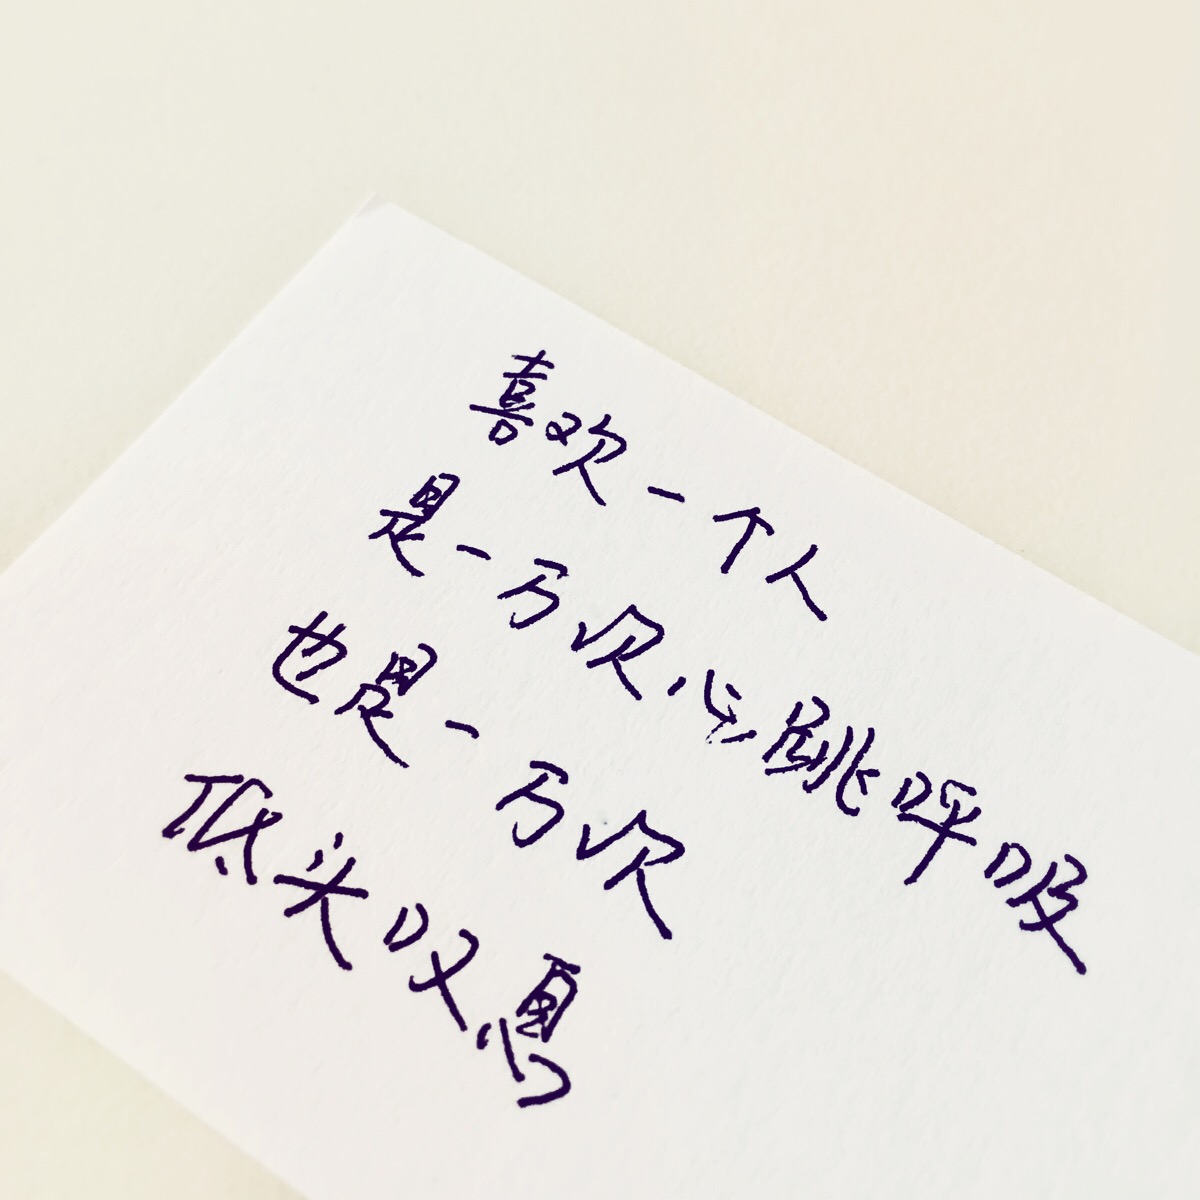 喜欢一个人
是一万次心跳呼吸
也是一万次
低头叹息